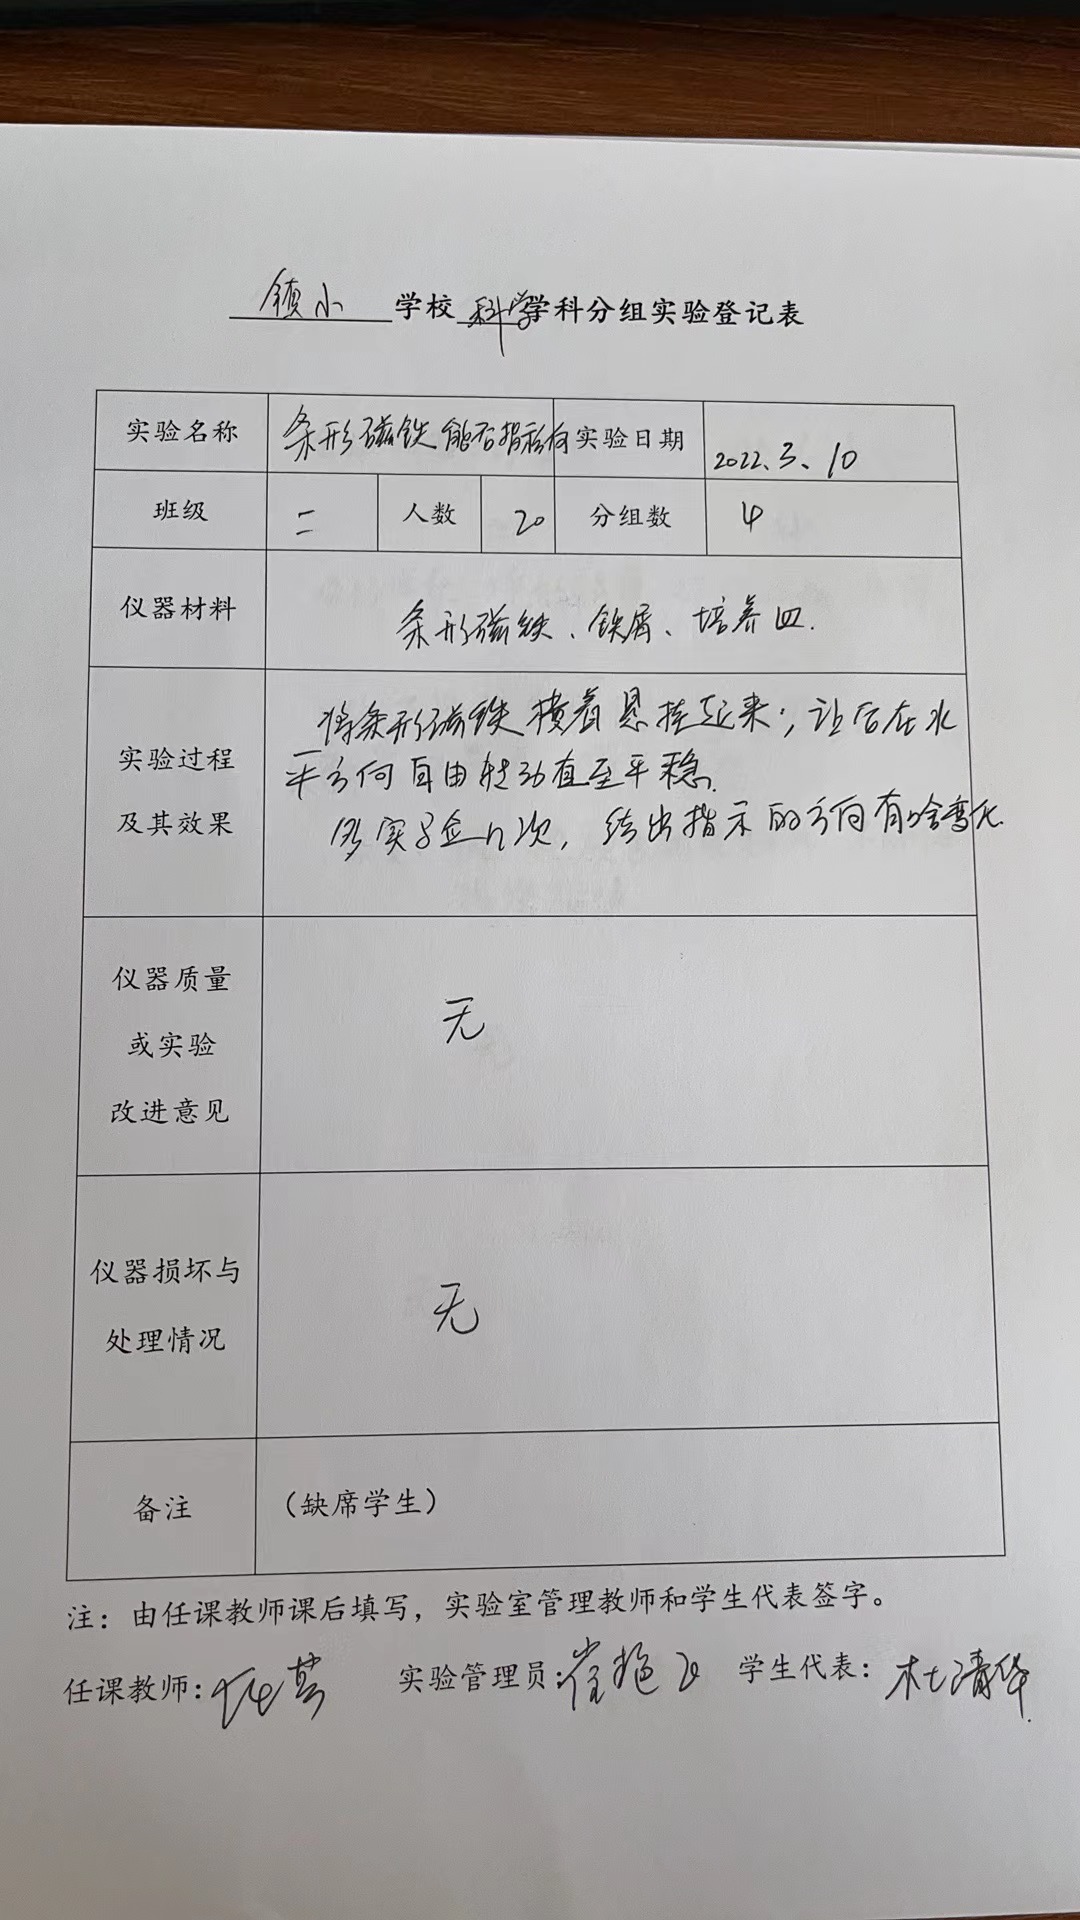 镇小 学校 科学 学科分组实验登记表
实验名称 条形磁铁能否指方向 实验日期 2022.3.10
班级 二 人数 20 分组数 4
仪器材料 条形磁铁、铁屑、培养皿.
实验过程
及其效果
将条形磁铁横着悬挂起来;让后在水
平方向自由转动直至平稳.
多实验几次,指示的方向有啥变化.
仪器质量
或实验
改进意见
无
仪器损坏与
处理情况
无
备注 (缺席学生)
注:由任课教师课后填写,实验室管理教师和学生代表签字。
任课教师: 实验管理员: 学生代表:杜清华